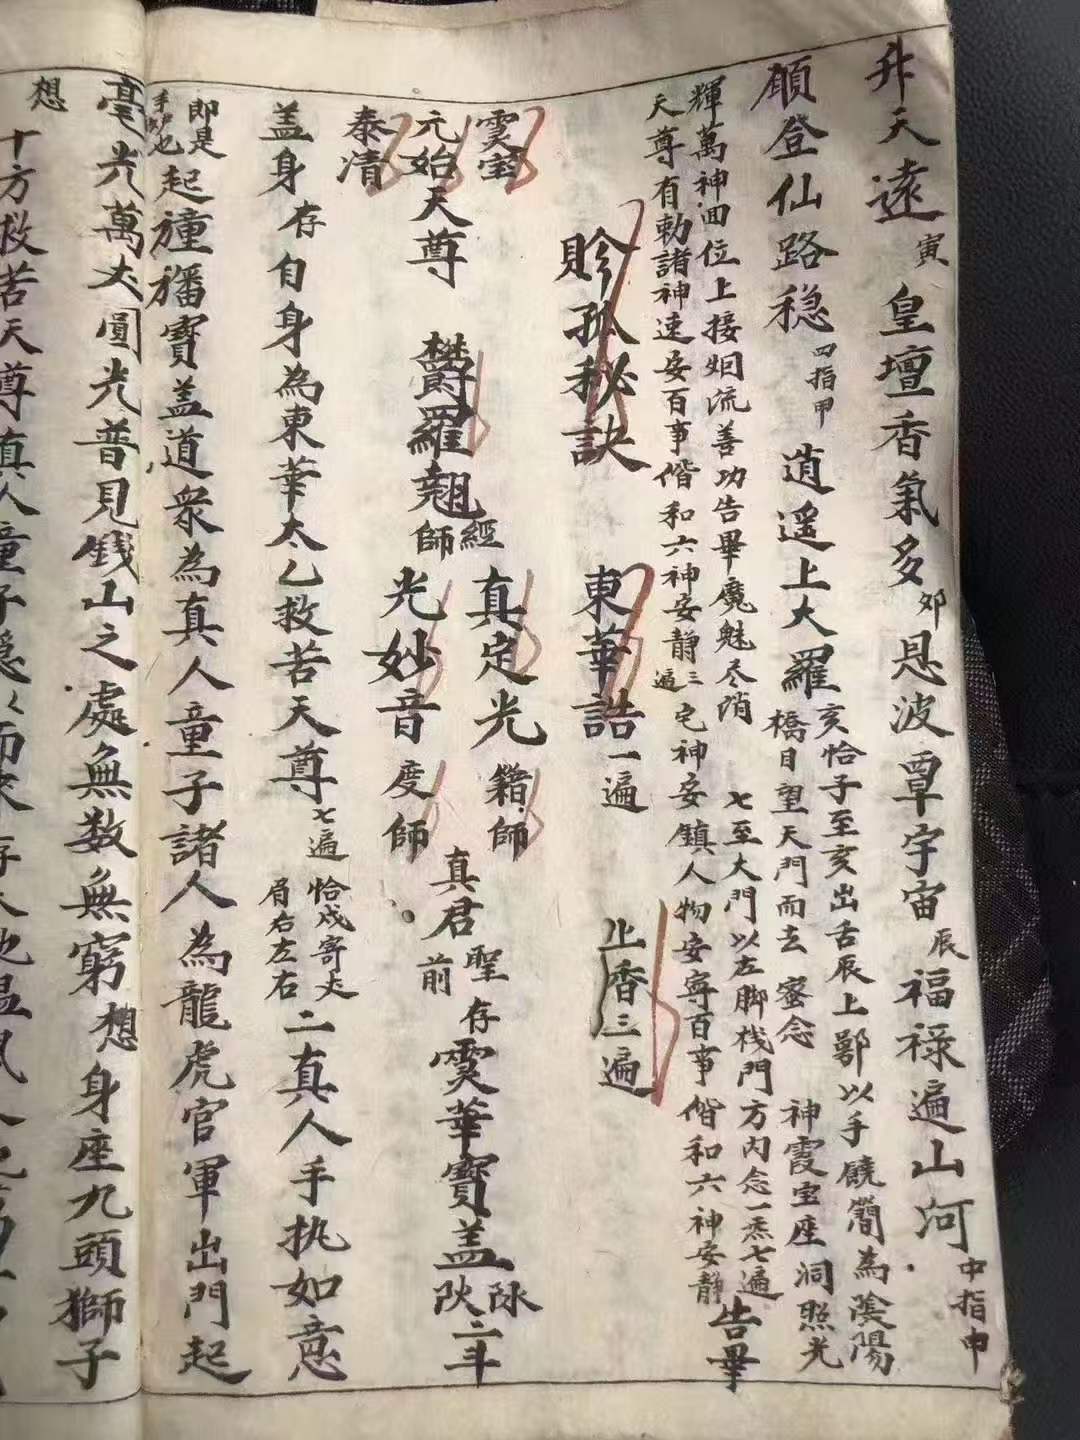 升天遠寅 皇壇香氣多卯 恩波覃宇宙辰 福祿遍山河中指申
願登仙路穏四指甲 逍遥上大羅亥恰子至亥出舌辰上鄂以手饒簡為陰陽
橋目望天門而去 密念 神霞宝座洞照光
輝萬神回位上接姻流善功告畢魔魅尽消 七至大門以左脚栈門方内念一炁七遍告畢
天尊有勅諸神速安百事偕和六神安静三遍 宅神安鎮人物安寧百事偕和六神安静
賑孤秘訣 東華誥一遍 上香三遍
雯室 真定光 籍師
元始天尊 欝羅翹經師 真君聖前 存雯華寶盖
泰清 光妙音 度師
盖身存自身為東華太乙救苦天尊七遍 恰戌寄丈局右左右 二真人手执如意
即是手炉也起幢旛寶盖道衆為真人童子諸人為龍虎官軍出門起
毫光萬丈圓光普見錢山之處無数無窮想身座九頭獅子
想十方救苦天尊真人童子隠々而来存